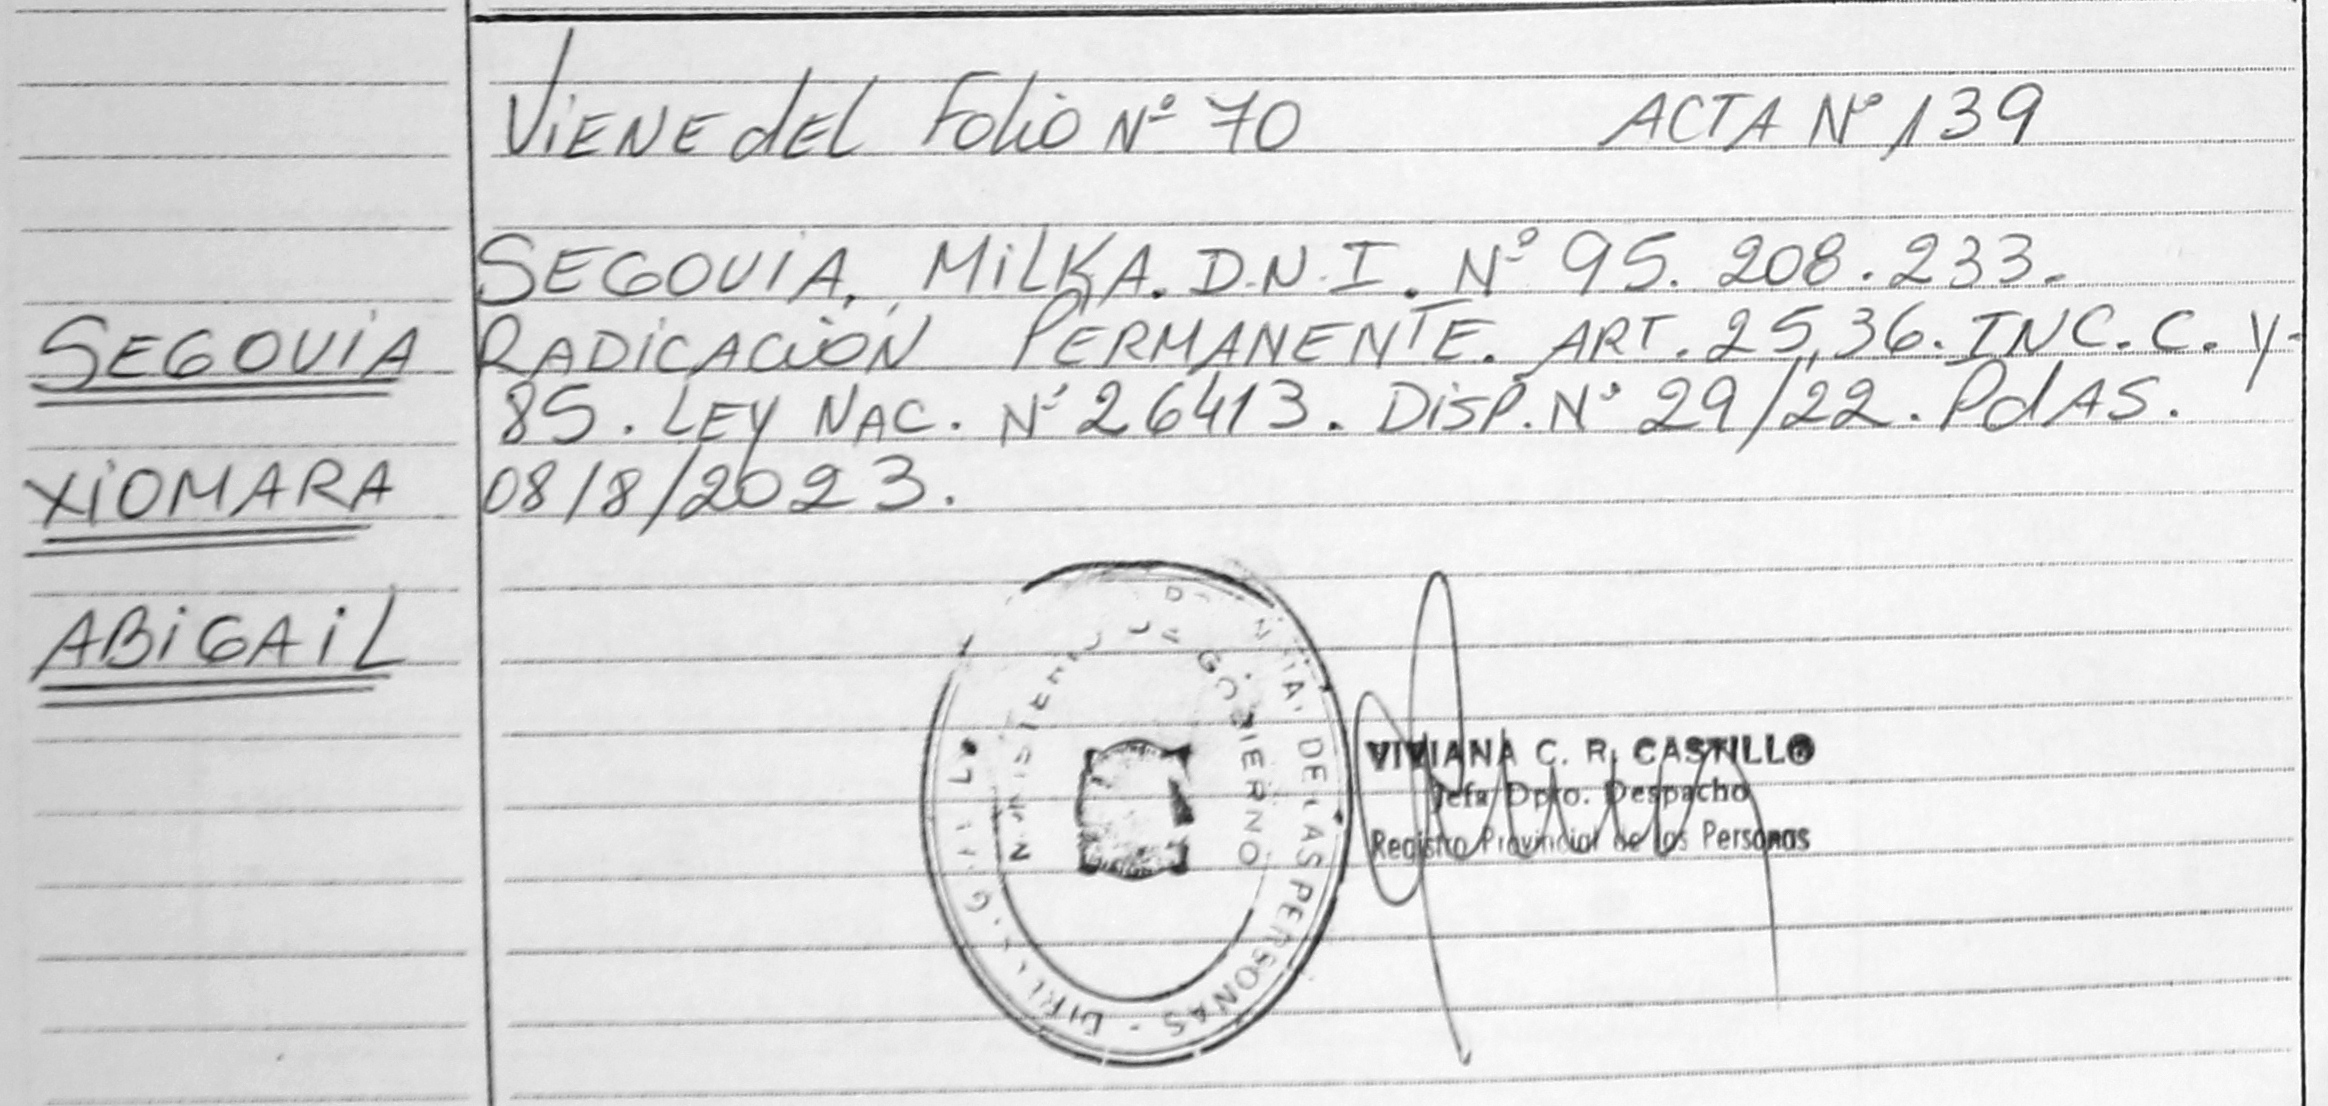 VIENE dEL Folio Nº 70 ACTA Nº 139
SEGOVIA, MILKA. D.N.I. Nº 95.208.233.
SEGOVIA
RADICACIÓN PERMANENTE. ART. 25,36. INC. C. Y-
85. LEY NAC. Nº 26413. DISP. Nº 29/22. PdAS.
XIOMARA
08/8/2023.
ABIGAIL
MINISTERIO DE GOBIERNO
DE LAS PERSONAS -
VIVIANA C. R. CASTILLO
Jefa Dpto. Despacho
Registro Provincial de las Personas